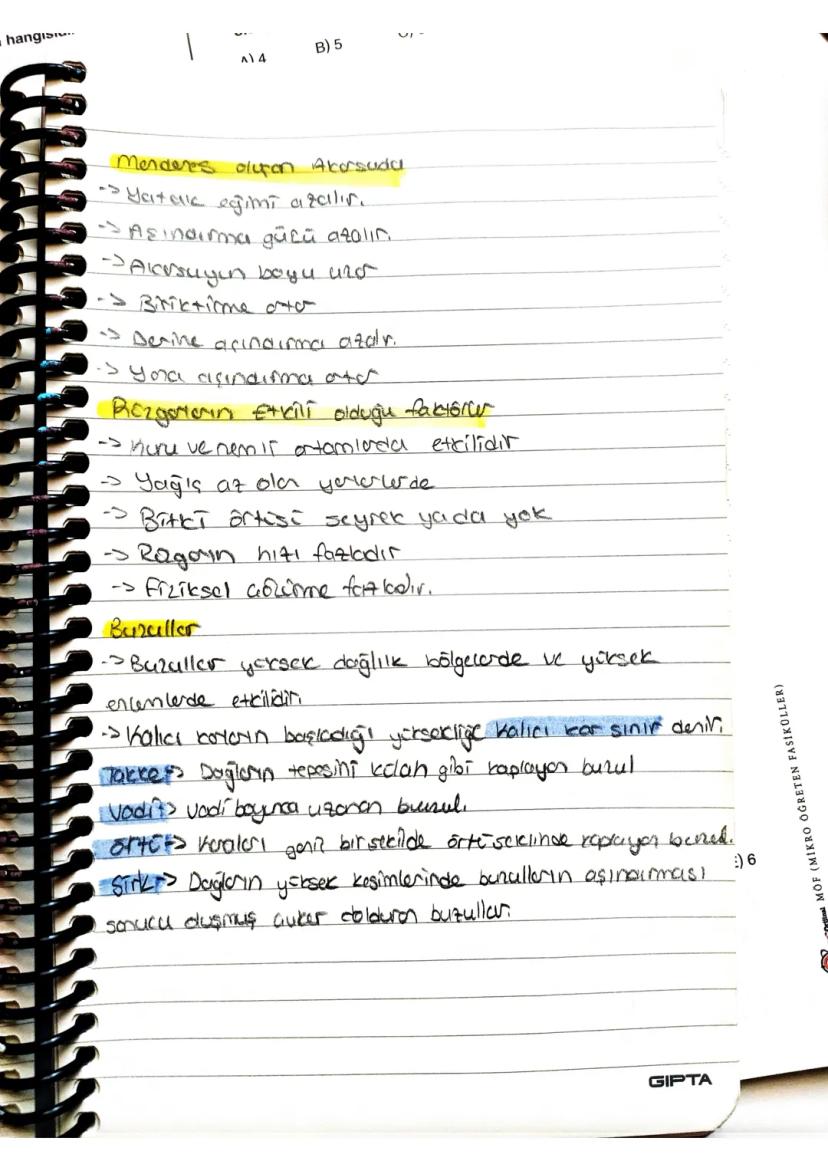 hangisi
A) 4
B) 5
Menderes oluşan Akarsuda
-> Yatak eğimi azalır.
-> Aşındırma gücü azalır.
-> Akarsuyun boyu uzar
-> Biriktirme artar
-> Derine aşındırma azalır.
-> Yana aşındırma artar
Rüzgarların Etkili olduğu faktörler
-> Kuru ve nemli ortamlarda etkilidir
-> Yağış az olan yererlerde
-> Bitki örtüsi seyrek yada yok
-> Rüzgarın hızı fazladır
-> Fiziksel çözünme fazladır.
Buzullar
-> Buzullar yüksek dağlık bölgelerde ve yüksek
enlemlerde etkilidir.
-> Kalıcı karların başladığı yüksekliğe Kalıcı kar sınır denir.
Takke -> Dağların tepesini külah gibi kaplayan buzul
Vadi -> vadi boyunca uzanan buzul.
Örtü -> Karaları geniş bir şekilde örtü şeklinde kaplayan buzul.
Sirk -> Dağların yüksek kesimlerinde buzulların aşındırması
sonucu oluşmuş çukur dolduran buzullar.
E) 6
MOF (MİKRO ÖĞRETEN FASİKÜLLER)
GIPTA